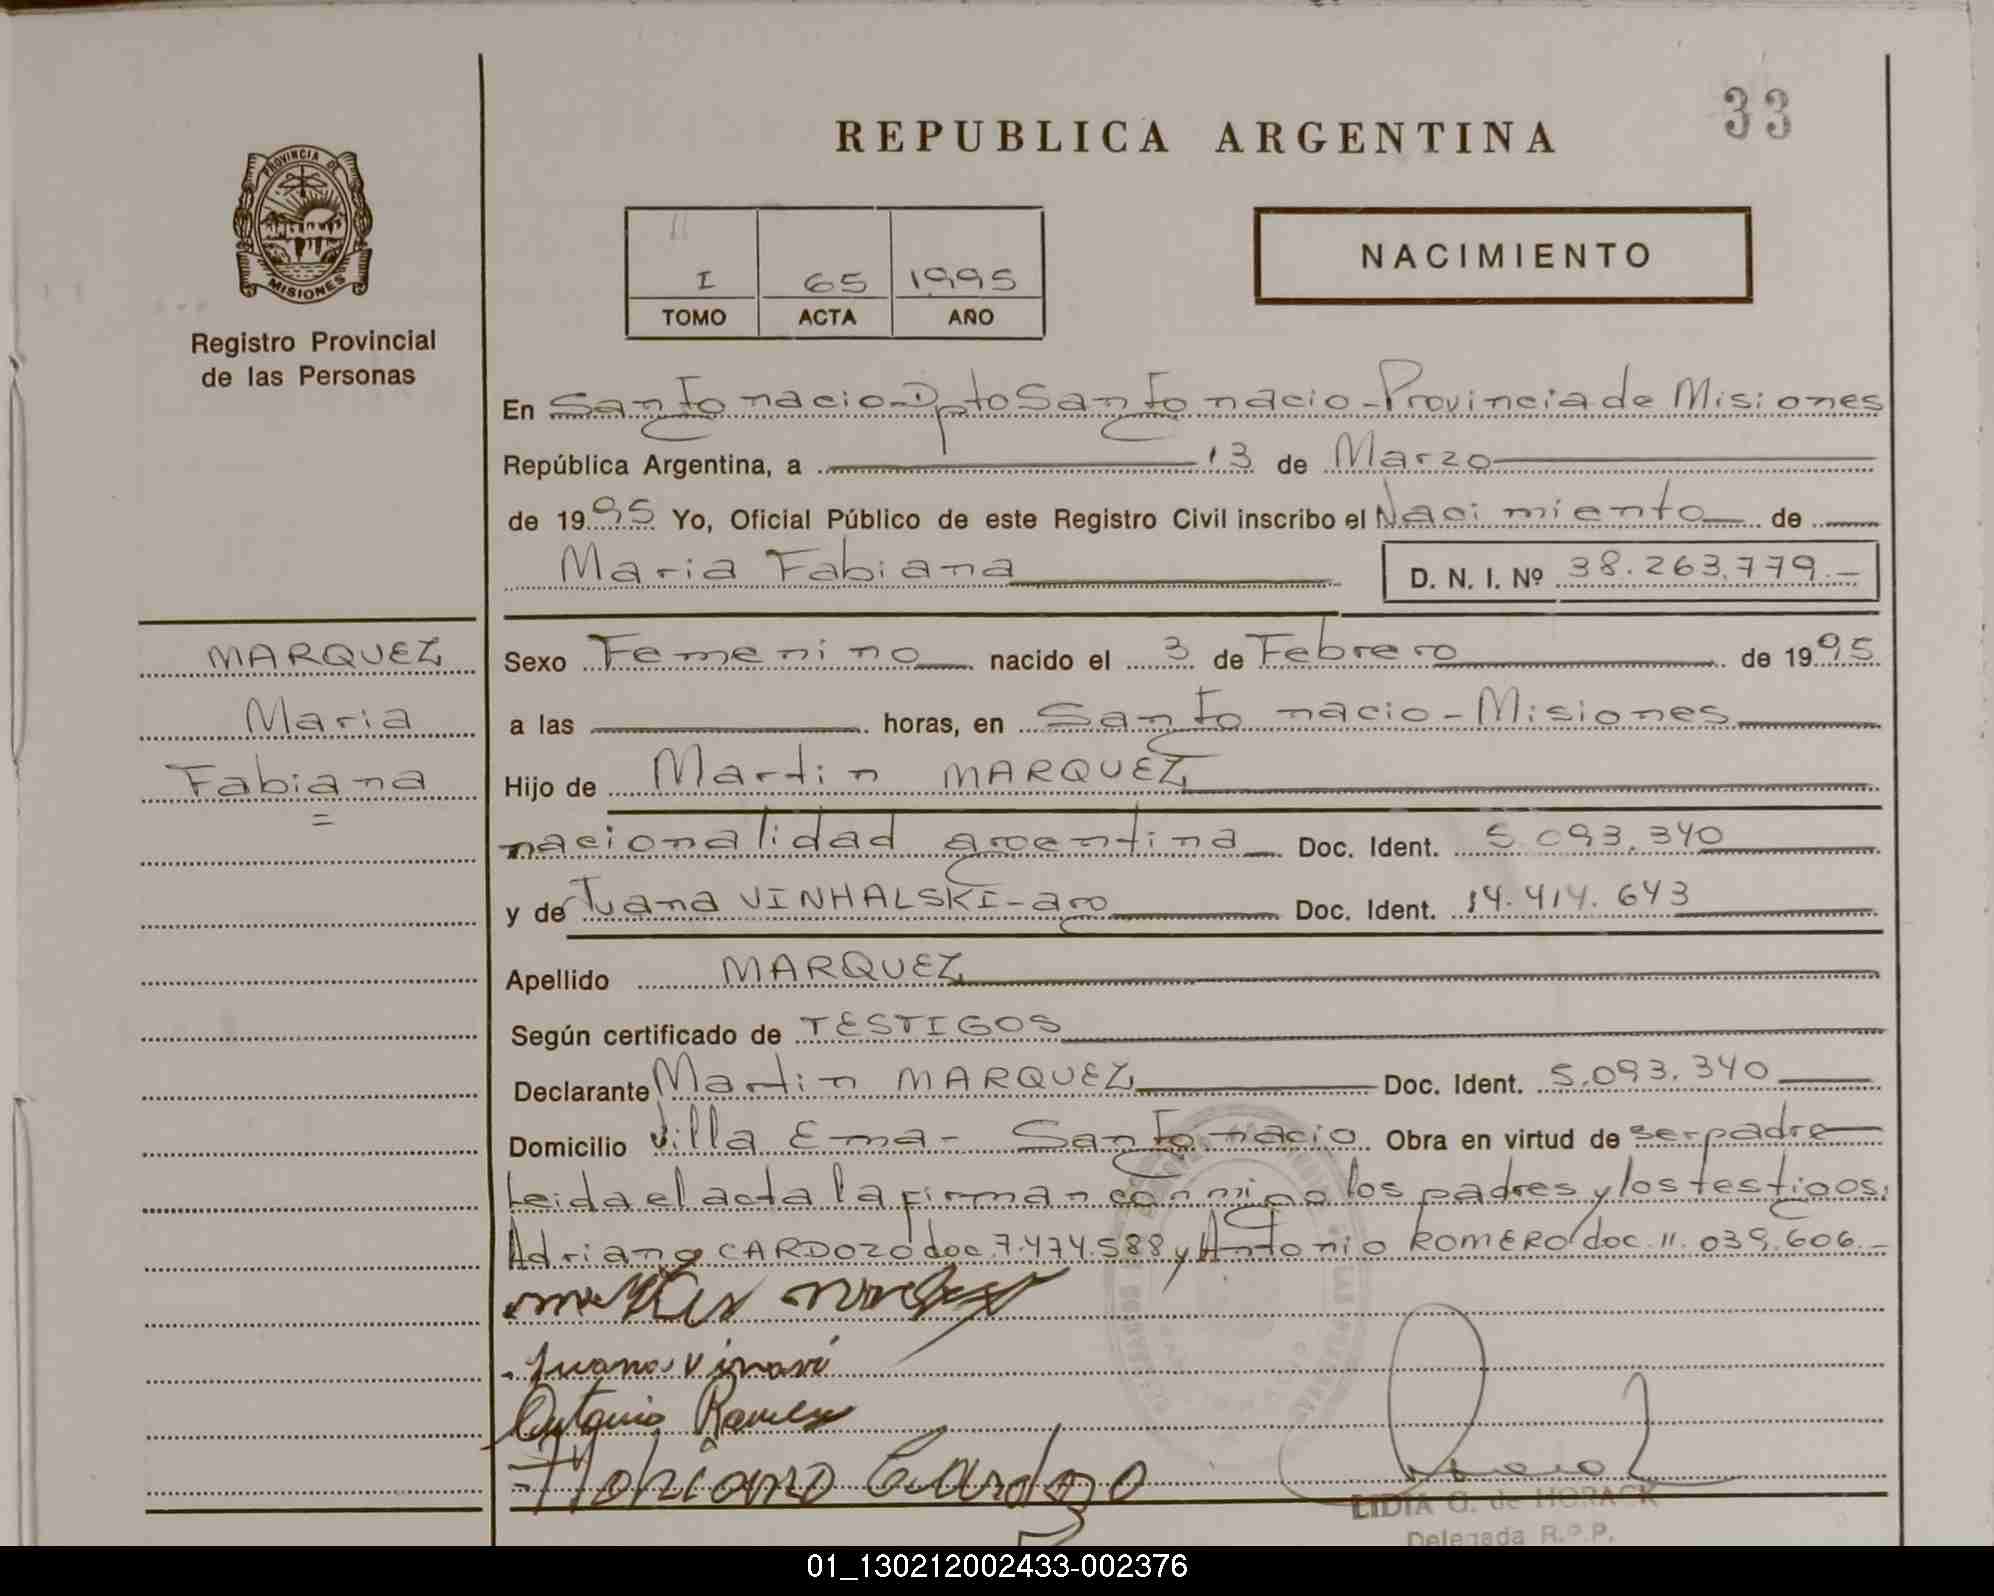 33
REPUBLICA ARGENTINA
PROVINCIA DE
MISIONES
Registro Provincial
de las Personas
I 65 1995
TOMO ACTA AÑO
NACIMIENTO
En San Ignacio-Dpto San Ignacio-Provincia de Misiones
República Argentina, a 13 de Marzo
de 1995 Yo, Oficial Público de este Registro Civil inscribo el Nacimiento de
Maria Fabiana D. N. I. Nº 38.263.779.-
MARQUEZ
Maria
Fabiana
=
Sexo Femenino nacido el 3 de Febrero de 1995
a las horas, en San Ignacio-Misiones
Hijo de Martin MARQUEZ
nacionalidad argentina Doc. Ident. 5.093.340
y de Juana VINHALSKI-arg Doc. Ident. 14.414.643
Apellido MARQUEZ
Según certificado de TESTIGOS
Declarante Martin MARQUEZ Doc. Ident. 5.093.340
Domicilio Villa Ema- San Ignacio Obra en virtud de ser padre
Leida el acta la firman conmigo los padres y los testigos:
Adriano CARDOZO doc.7.474.588 y Antonio ROMERO doc.11.039.606.-
Juana
Antonio
Cardozo
LIDIA G. de HORACK
Delegada R.P.P.
01_130212002433-002376